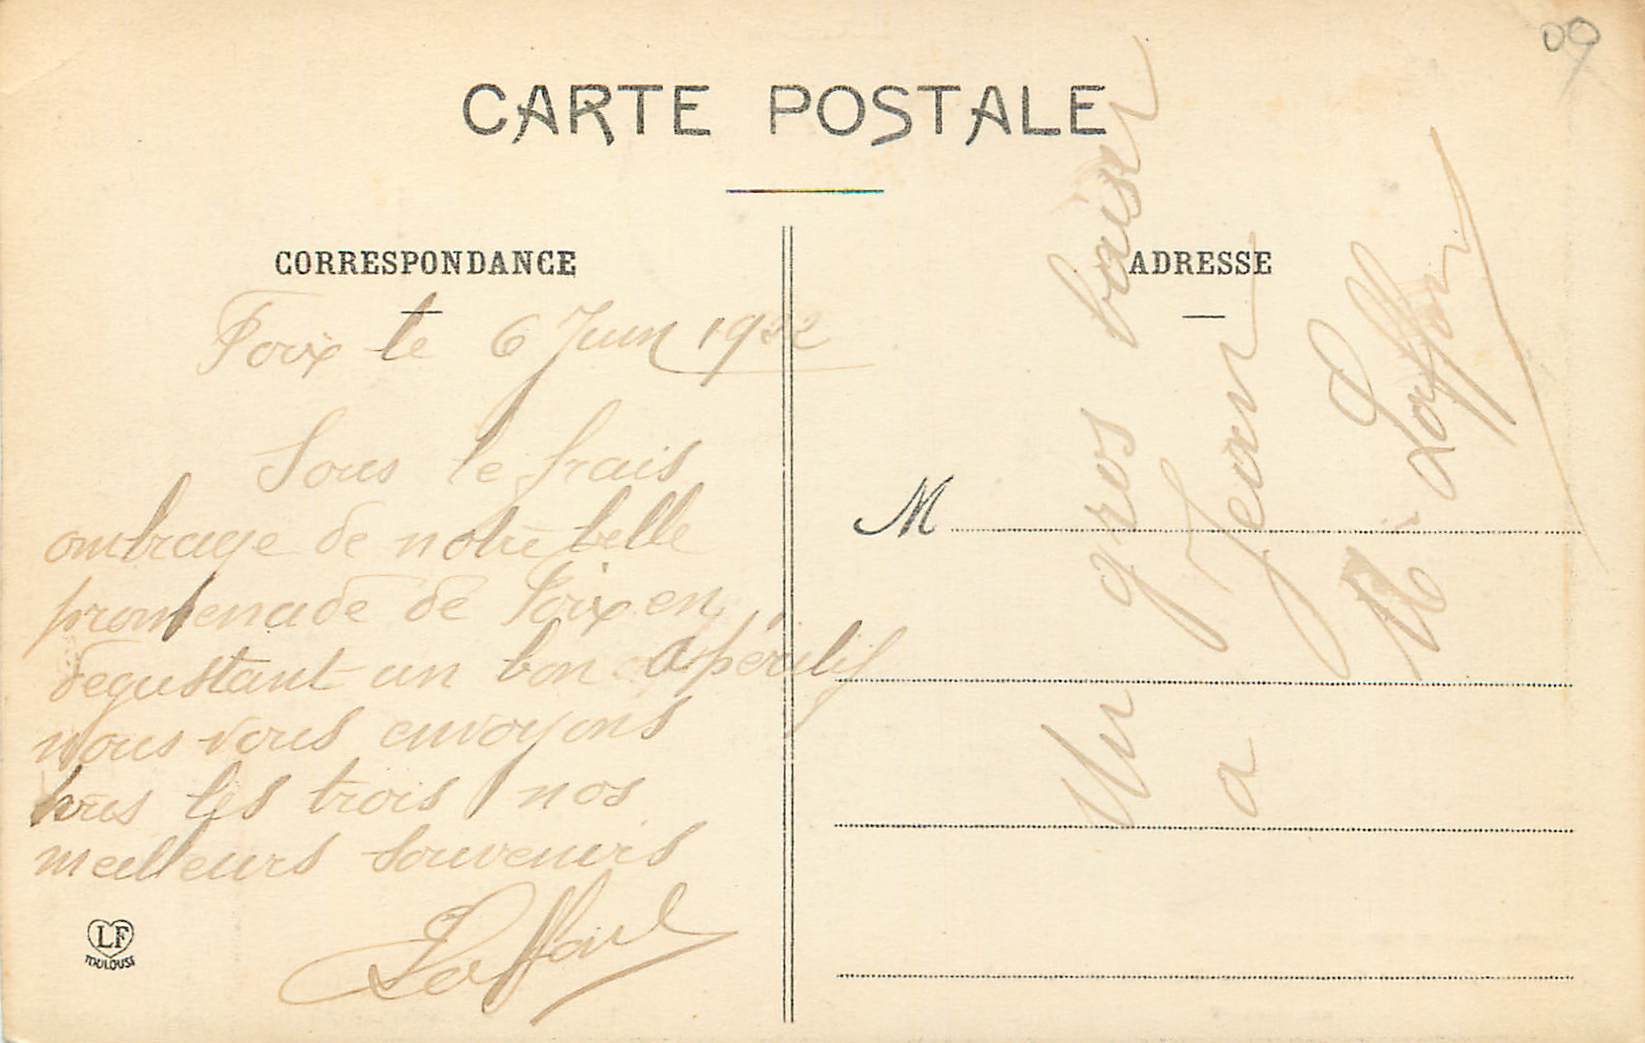 09
CARTE POSTALE
CORRESPONDANCE
Foix le 6 Juin 1922
Sous le frais
ombrage de notre belle
promenade de Foix en
degustant un bon apéritif
nous vous envoyons
tous les trois nos
meilleurs souvenirs
Laffont
LF
TOULOUSE
ADRESSE
M
Un gros baiser
a Jean
Laffont